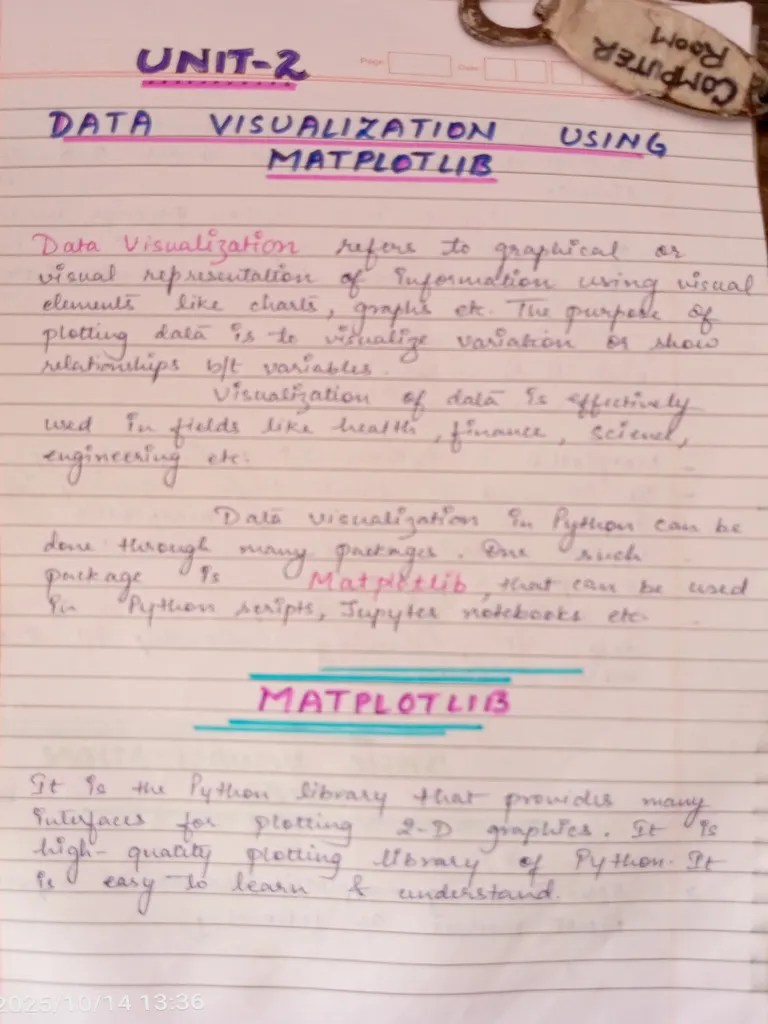 COMPUTER
ROOM
Page
Date
UNIT-2
DATA VISUALIZATION USING
MATPLOTLIB
Data Visualization refers to graphical or
visual representation of information using visual
elements like charts, graphs etc. The purpose of
plotting data is to visualize variation or show
relationships b/t variables.
Visualization of data is effectively
used in fields like health, finance, science,
engineering etc.
Data visualization in Python can be
done through many packages. One such
package is Matplotlib, that can be used
in Python scripts, Jupyter notebooks etc.
MATPLOTLIB
It is the Python library that provides many
interfaces for plotting 2-D graphics. It is
high-quality plotting library of Python. It
is easy to learn & understand.
2025/10/14 13:36